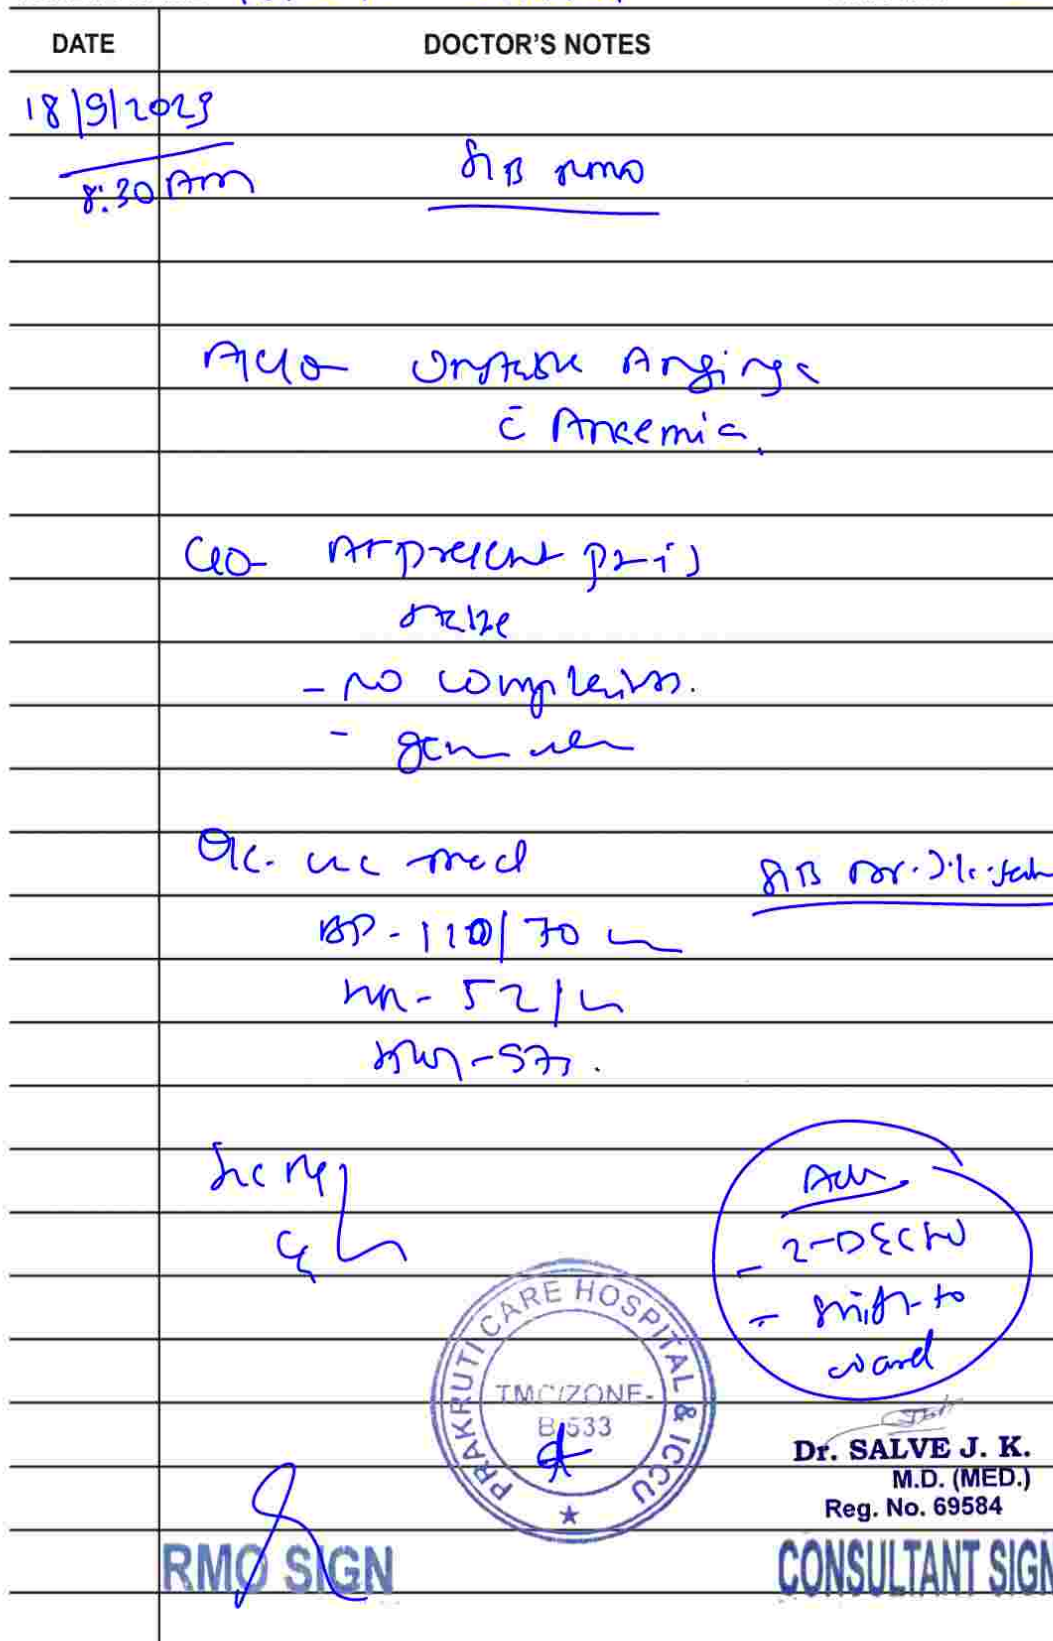 DATE DOCTOR'S NOTES
18/9/2023
8:30 Am
S/B RMO
Unstable Angina
c̄ Anaemia.
C/O At present pt is
stable
- No complaints.
- gen
O/E.
S/B Dr. J.K. Salve
BP - 110/70
HR - 52/m
Adv
- 2-D ECHO
- Shift to
ward
PRAKRUTI CARE HOSPITAL & ICCU
TMC/ZONE-
B/533
Dr. SALVE J. K.
M.D. (MED.)
Reg. No. 69584
RMO SIGN
CONSULTANT SIGN